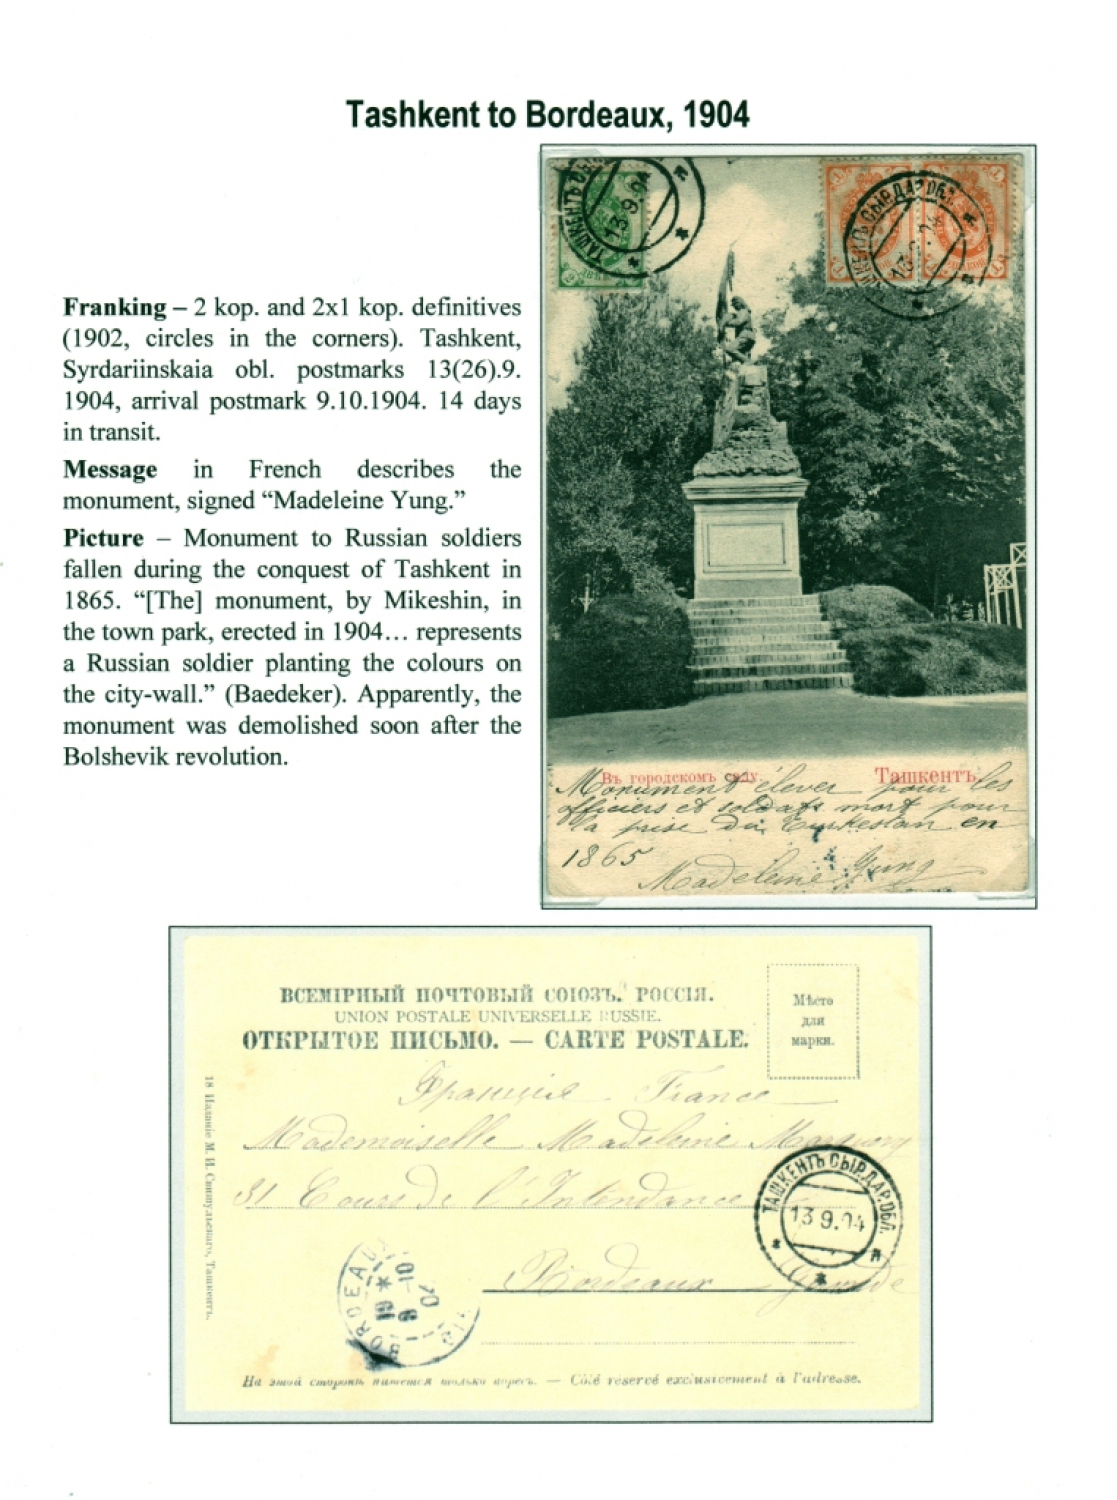 Tashkent to Bordeaux, 1904
Franking – 2 kop. and 2x1 kop. definitives
(1902, circles in the corners). Tashkent,
Syrdariinskaia obl. postmarks 13(26).9.
1904, arrival postmark 9.10.1904. 14 days
in transit.
Message in French describes the
monument, signed “Madeleine Yung.”
Picture – Monument to Russian soldiers
fallen during the conquest of Tashkent in
1865. “[The] monument, by Mikeshin, in
the town park, erected in 1904… represents
a Russian soldier planting the colours on
the city-wall.” (Baedeker). Apparently, the
monument was demolished soon after the
Bolshevik revolution.
ТАШКЕНТЪ
13.9.04
СЫРДАР.ОБЛ.
Въ городскомъ саду. Ташкентъ.
Monument élever pour les
officiers et soldats mort pour
la prise du Turkestan en
1865
Madeleine Yung
ВСЕМІРНЫЙ ПОЧТОВЫЙ СОЮЗЪ. РОССІЯ.
UNION POSTALE UNIVERSELLE RUSSIE.
ОТКРЫТОЕ ПИСЬМО. — CARTE POSTALE.
Мѣсто
для
марки.
Франція France
Mademoiselle Madeleine
31 Cours de l'Intendance
Bordeaux Gironde
ТАШКЕНТЪ СЫРДАР.ОБЛ.
13.9.04
BORDEAUX
18 Изданіе М. И. Свишульскаго, Ташкентъ.
На этой сторонѣ пишется только адресъ. — Côté réservé exclusivement à l'adresse.